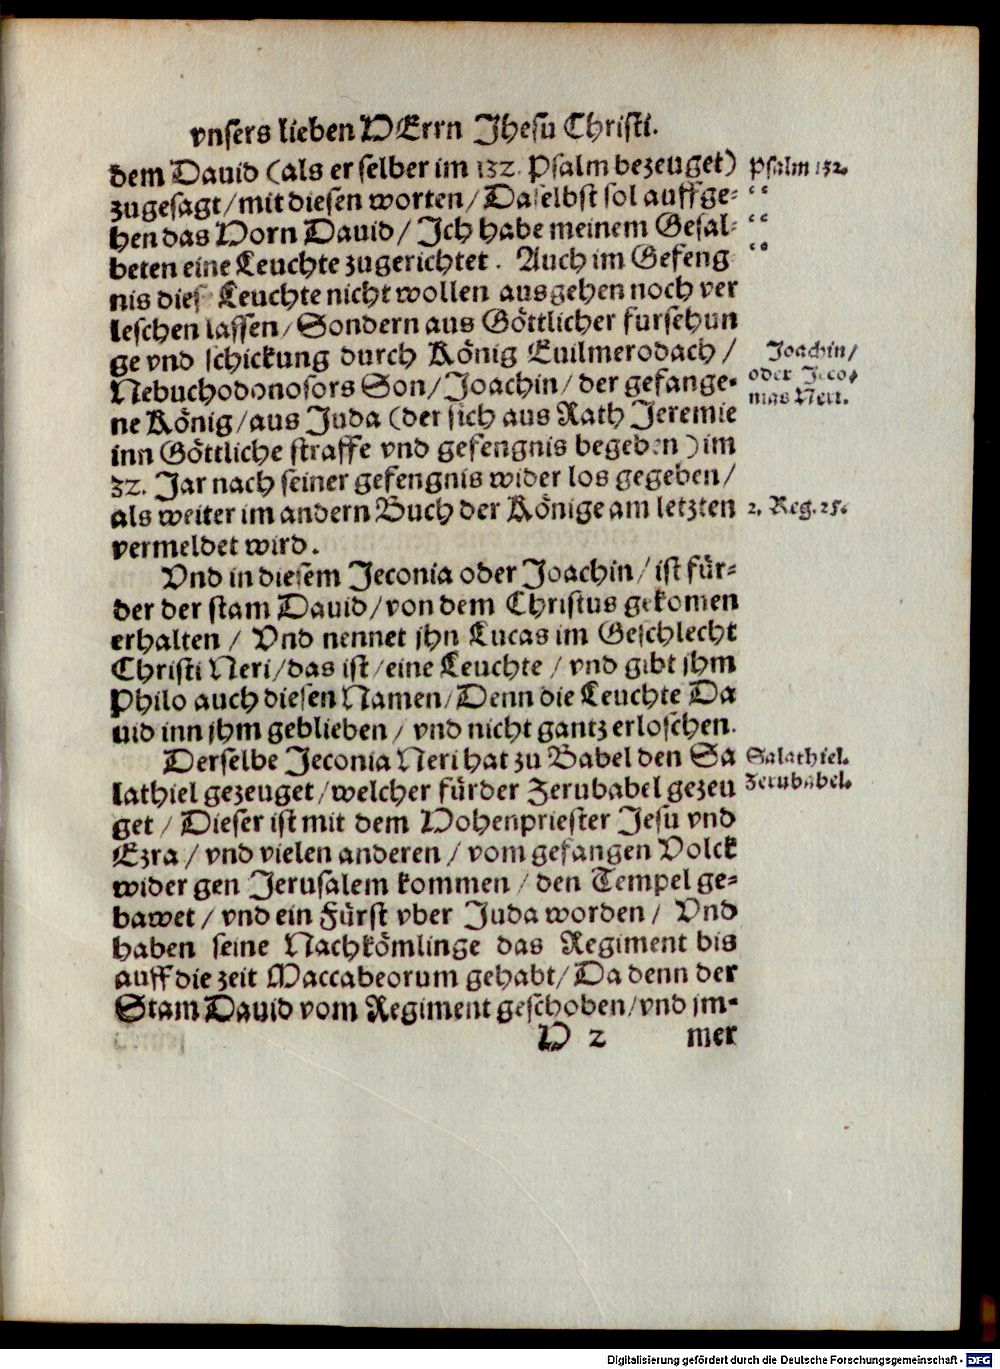 vnsers lieben HErrn Jhesu Christi.
dem Dauid (als er selber im 132. Psalm bezeuget)
Psalm 132.
zugesagt/ mit diesen worten/ Daselbst sol auffge-
hen das Horn Dauid/ Jch habe meinem Gesal-
beten eine Leuchte zugerichtet. Auch im Gefeng
nis dies Leuchte nicht wollen ausgehen noch ver
leschen lassen/ Sondern aus Göttlicher fursehun
ge vnd schickung durch König Euilmerodach/
Joachin/
Nebuchodonosors Son/ Joachin/ der gefange-
oder Jeco-
nias Neri.
ne König/ aus Juda (der sich aus Rath Jeremie
inn Göttliche straffe vnd gefengnis begeben) im
32. Jar nach seiner gefengnis wider los gegeben/
als weiter im andern Buch der Könige am letzten
2. Reg. 25.
vermeldet wird.
Vnd in diesem Jeconia oder Joachin/ ist für-
der der stam Dauid/ von dem Christus gekomen
erhalten/ Vnd nennet jhn Lucas im Geschlecht
Christi Neri/ das ist/ eine Leuchte/ vnd gibt jhm
Philo auch diesen Namen/ Denn die Leuchte Da
uid inn jhm geblieben/ vnd nicht gantz erloschen.
Derselbe Jeconia Neri hat zu Babel den Sa
Salathiel.
lathiel gezeuget/ welcher fürder Zerubabel gezeu
Zerubabel.
get/ Dieser ist mit dem Hohenpriester Jesu vnd
Ezra/ vnd vielen anderen/ vom gefangen Volck
wider gen Jerusalem kommen/ den Tempel ge-
bawet/ vnd ein Fürst vber Juda worden/ Vnd
haben seine Nachkömlinge das Regiment bis
auff die zeit Maccabeorum gehabt/ Da denn der
Stam Dauid vom Regiment geschoben/ vnd jm-
H 2 mer
Digitalisierung gefördert durch die Deutsche Forschungsgemeinschaft - DFG